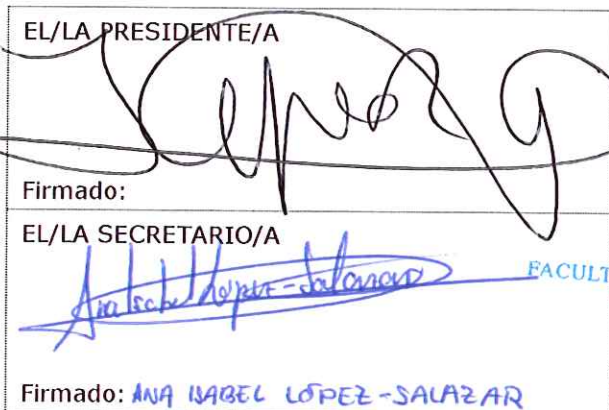 EL/LA PRESIDENTE/A
Firmado:
EL/LA SECRETARIO/A
Ana Isabel López-Salazar
FACULT
Firmado: ANA ISABEL LÓPEZ-SALAZAR